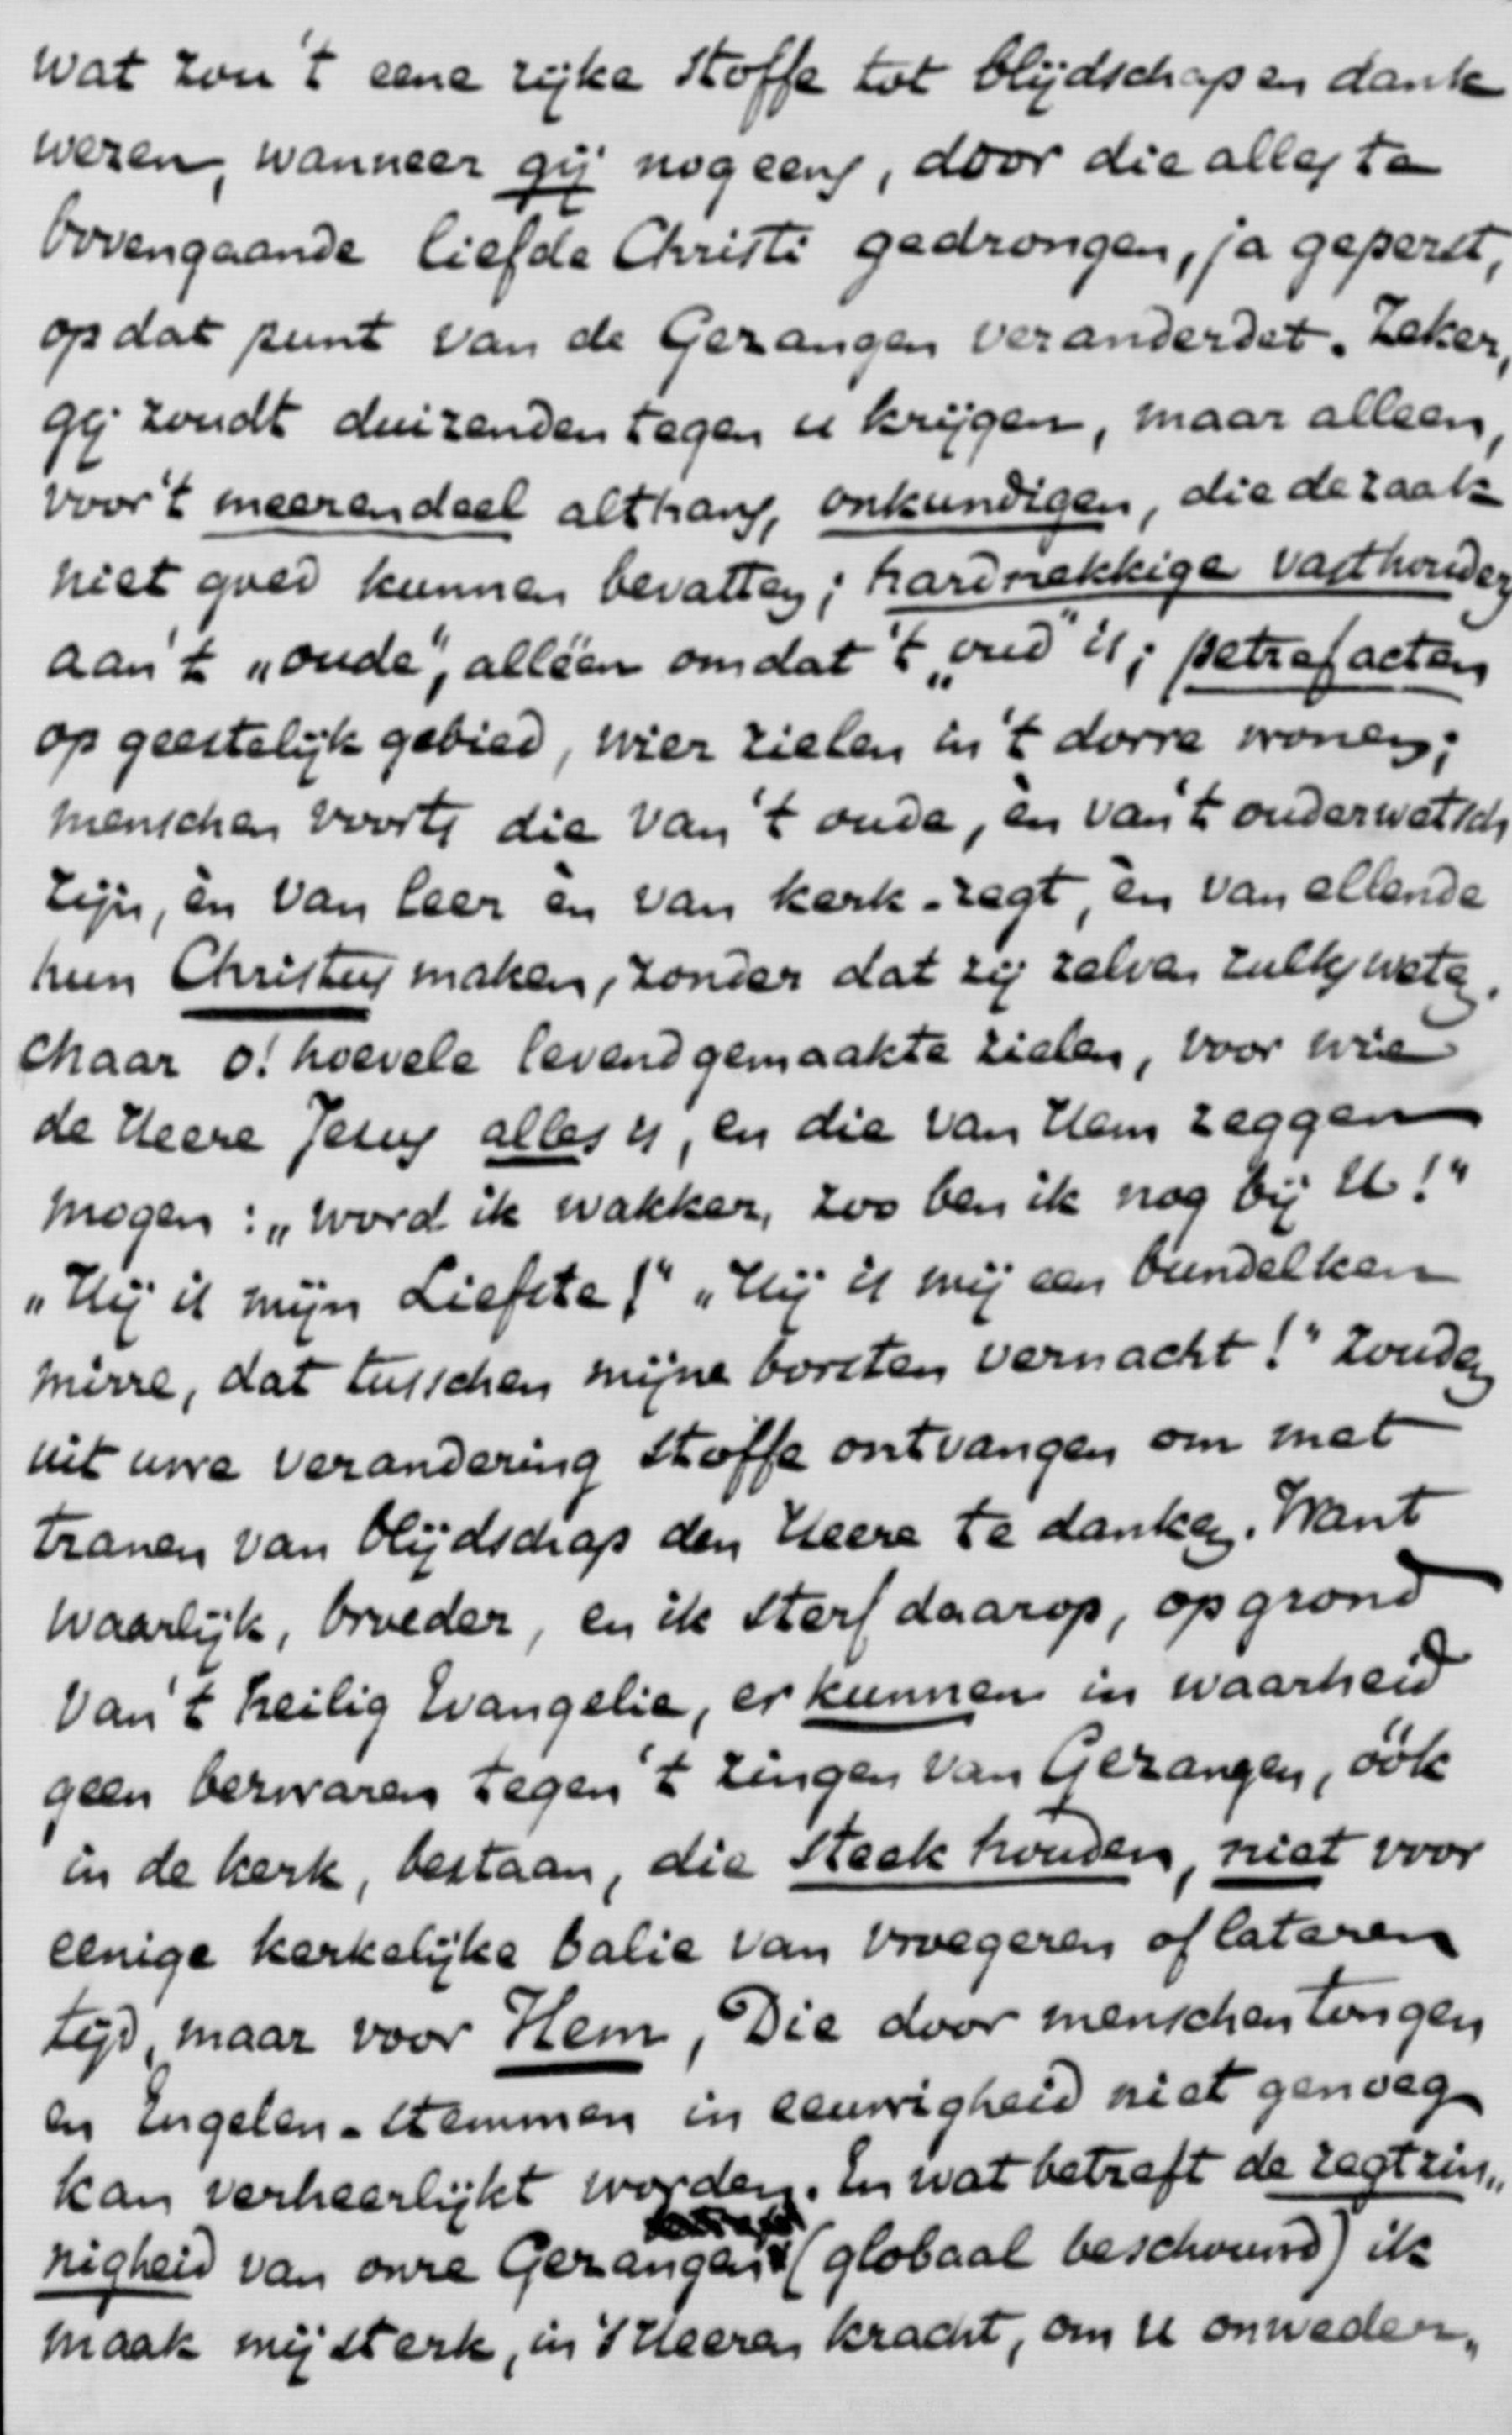 wat zou 't eene rijke stoffe tot blijdschap en dank
wezen, wanneer gij nog eens, door die alles te
bovengaande liefde Christi gedrongen, ja geperst,
op dat punt van de Gezangen veranderdet. Zeker,
gij zoudt duizenden tegen u krijgen, maar alleen,
voor 't meerendeel althans, onkundigen, die de zaak
niet goed kunnen bevatten; hardnekkige vasthouders
aan 't „oude", alléén omdat 't „oud" is; petrefacten
op geestelijk gebied, wier zielen in 't dorre wonen;
menschen voorts die van 't oude, èn van 't ouderwetsch
zijn, èn van leer èn van kerk-regt, èn van ellende
hun Christus maken, zonder dat zij zelven zulks weten.
Maar o! hoevele levendgemaakte zielen, voor wie
de Heere Jesus alles is, en die van Hem zeggen
mogen: „word ik wakker, zoo ben ik nog bij U!"
„Hij is mijn Liefste!" „Hij is mij een bundelken
mirre, dat tusschen mijne borsten vernacht!" Zouden
uit uwe verandering stoffe ontvangen om met
tranen van blijdschap den Heere te danken. Want
waarlijk, broeder, en ik sterf daarop, op grond
van 't heilig Evangelie, er kunnen in waarheid
geen bezwaren tegen 't zingen van Gezangen, óók
in de kerk, bestaan, die steek houden, niet voor
eenige kerkelijke balie van vroegeren of lateren
tijd, maar voor Hem, Die door menschentongen
en Engelen-stemmen in eeuwigheid niet genoeg
kan verheerlijkt worden. En wat betreft de regtzin„
nigheid van onze Gezangen (globaal beschouwd) ik
maak mij sterk, in 's Heeren kracht, om U onweder„